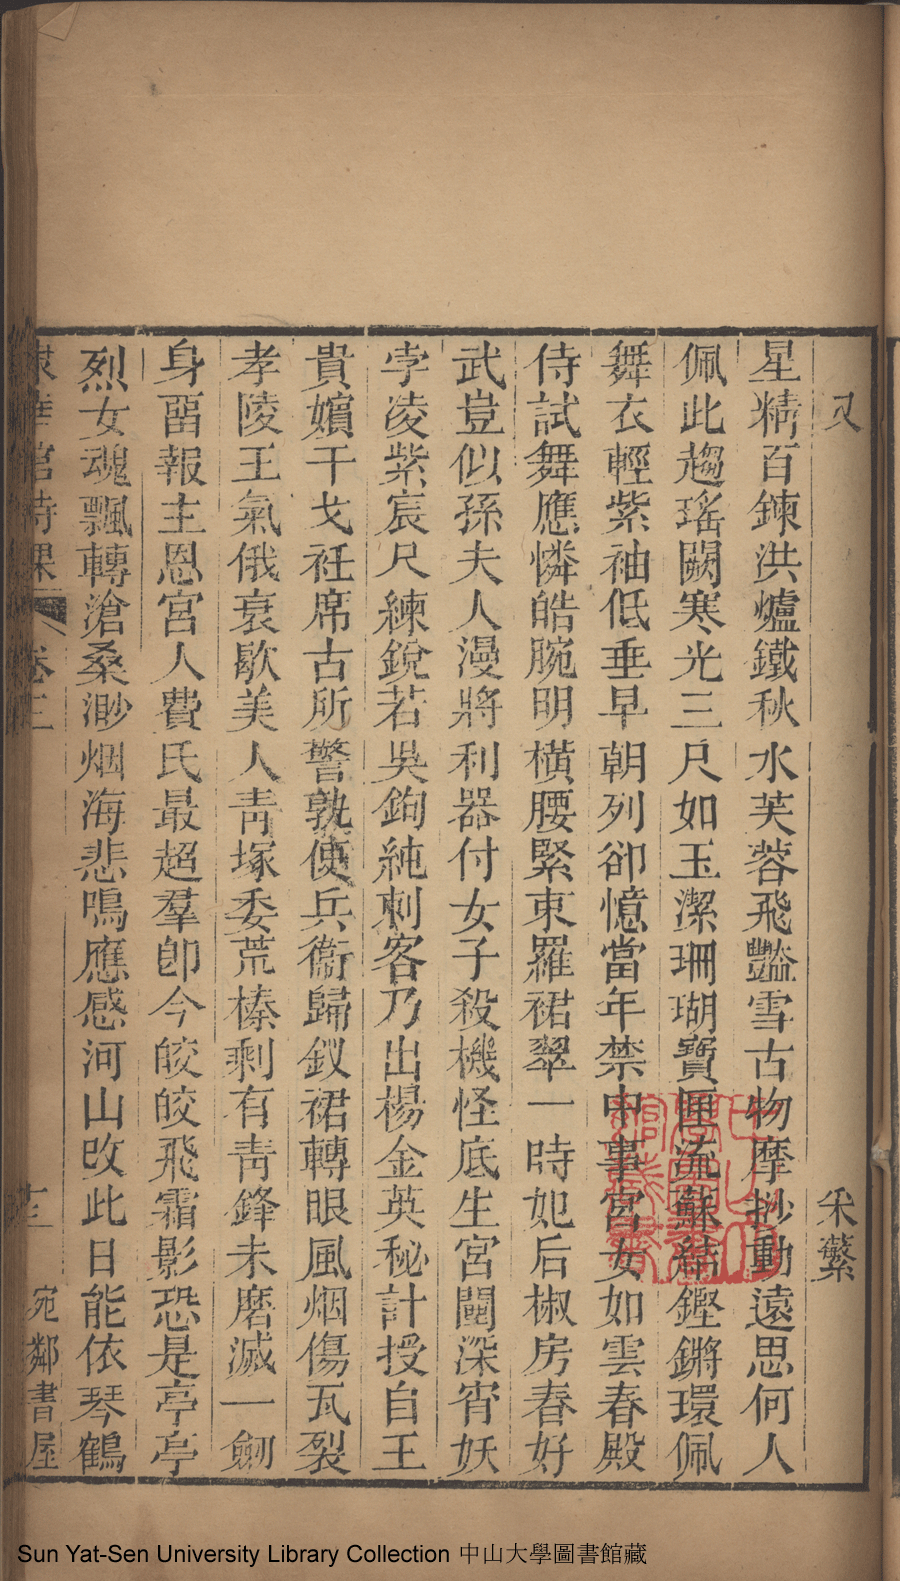 又　采蘩
星精百鍊洪爐鐵秋水芙蓉飛豔雪古物摩抄動遠思何人
佩此趨瑤闕寒光三尺如玉潔珊瑚寶匣流蘇結鏗鏘環佩
舞衣輕紫袖低垂早朝列卻憶當年禁中事宮女如雲春殿
侍試舞應憐皓腕明橫腰緊束羅裙翠一時妃后椒房春好
武豈似孫夫人漫將利器付女子殺機怪底生宮闈深宵妖
孛凌紫宸尺練銳若吳鉤純刺客乃出楊金英秘計授自王
貴嬪干戈衽席古所警孰使兵衞歸釵裙轉眼風烟傷瓦裂
孝陵王氣俄衰歇美人靑塚委荒榛剩有靑鋒未磨滅一劒
身畱報主恩宮人費氏最超羣卽今皎皎飛霜影恐是亭亭
烈女魂飄轉滄桑渺烟海悲鳴應感河山改此日能依琴鶴
棣華館詩課　卷三　十三　宛鄰書屋
Sun Yat-Sen University Library Collection 中山大學圖書館藏